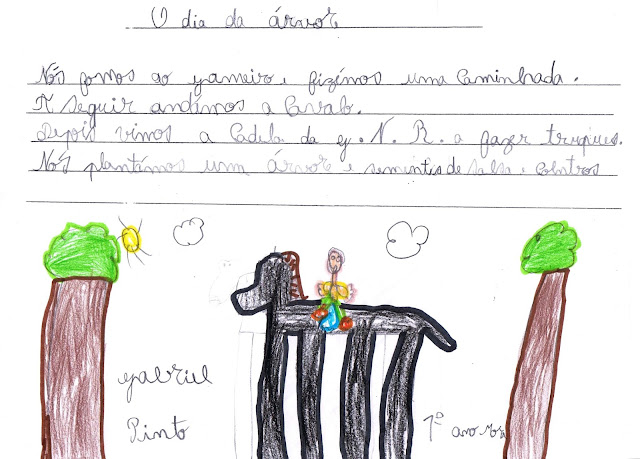 O dia da árvore
Nós fomos ao gameiro, fizémos uma Caminhada.
A seguir andámos a Cavalo.
Depois vimos a Cadela da g. N. R. a fazer truques.
Nós plantámos um árvore e sementes de salsa e Coentros
gabriel
Pinto
1º ano